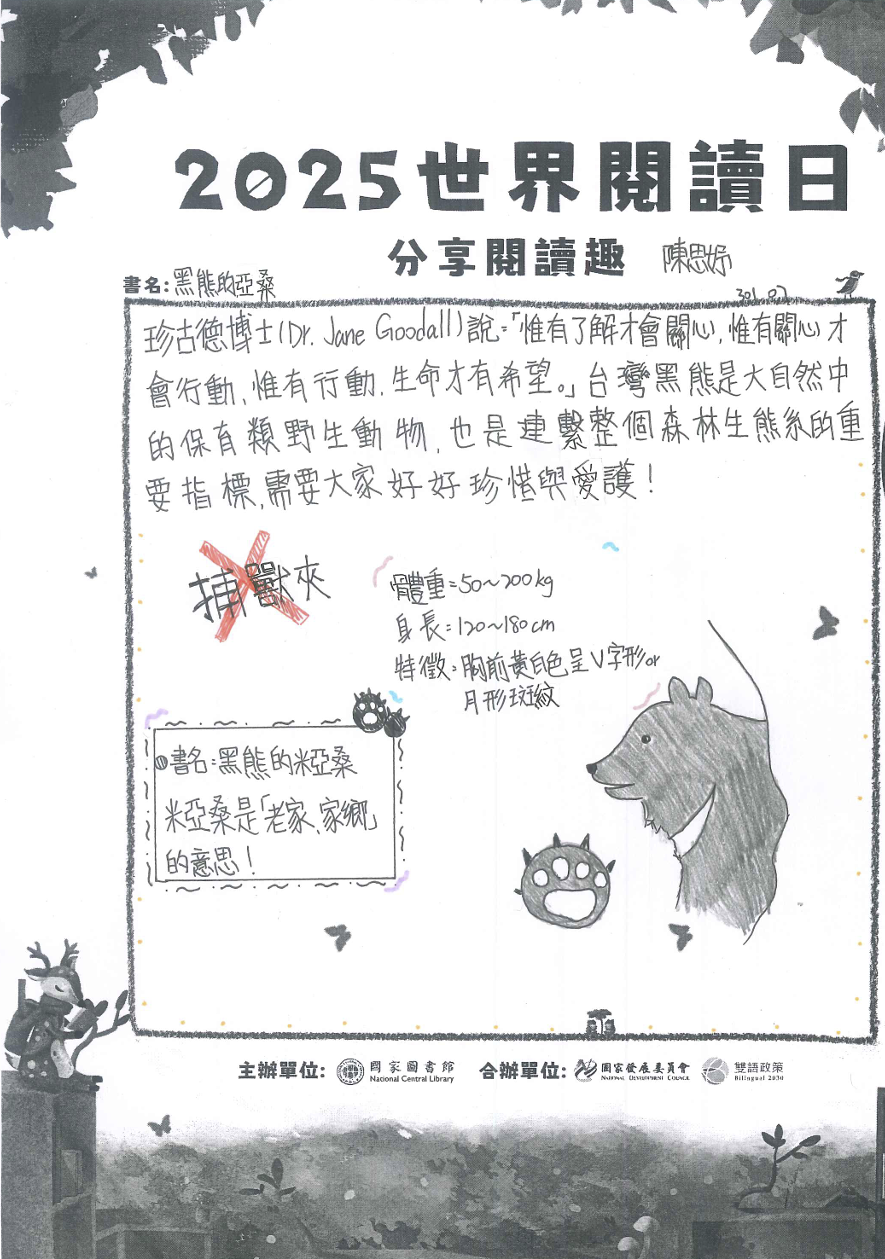 2025世界閱讀日
分享閱讀趣 陳思妤
書名:黑熊的亞桑
301.07
珍古德博士(Dr. Jane Goodall)說:「惟有了解才會關心,惟有關心才
會行動,惟有行動,生命才有希望。」台灣黑熊是大自然中
的保育類野生動物,也是連繫整個森林生熊系的重
要指標,需要大家好好珍惜與愛護!
捕獸夾
體重:50~200kg
身長:120~180cm
特徵:胸前黃白色呈V字形or
月形斑紋
書名:黑熊的米亞桑
米亞桑是「老家,家鄉」
的意思!
主辦單位: 國家圖書館 合辦單位: 國家發展委員會 雙語政策
National Central Library National Development Council Bilingual 2030